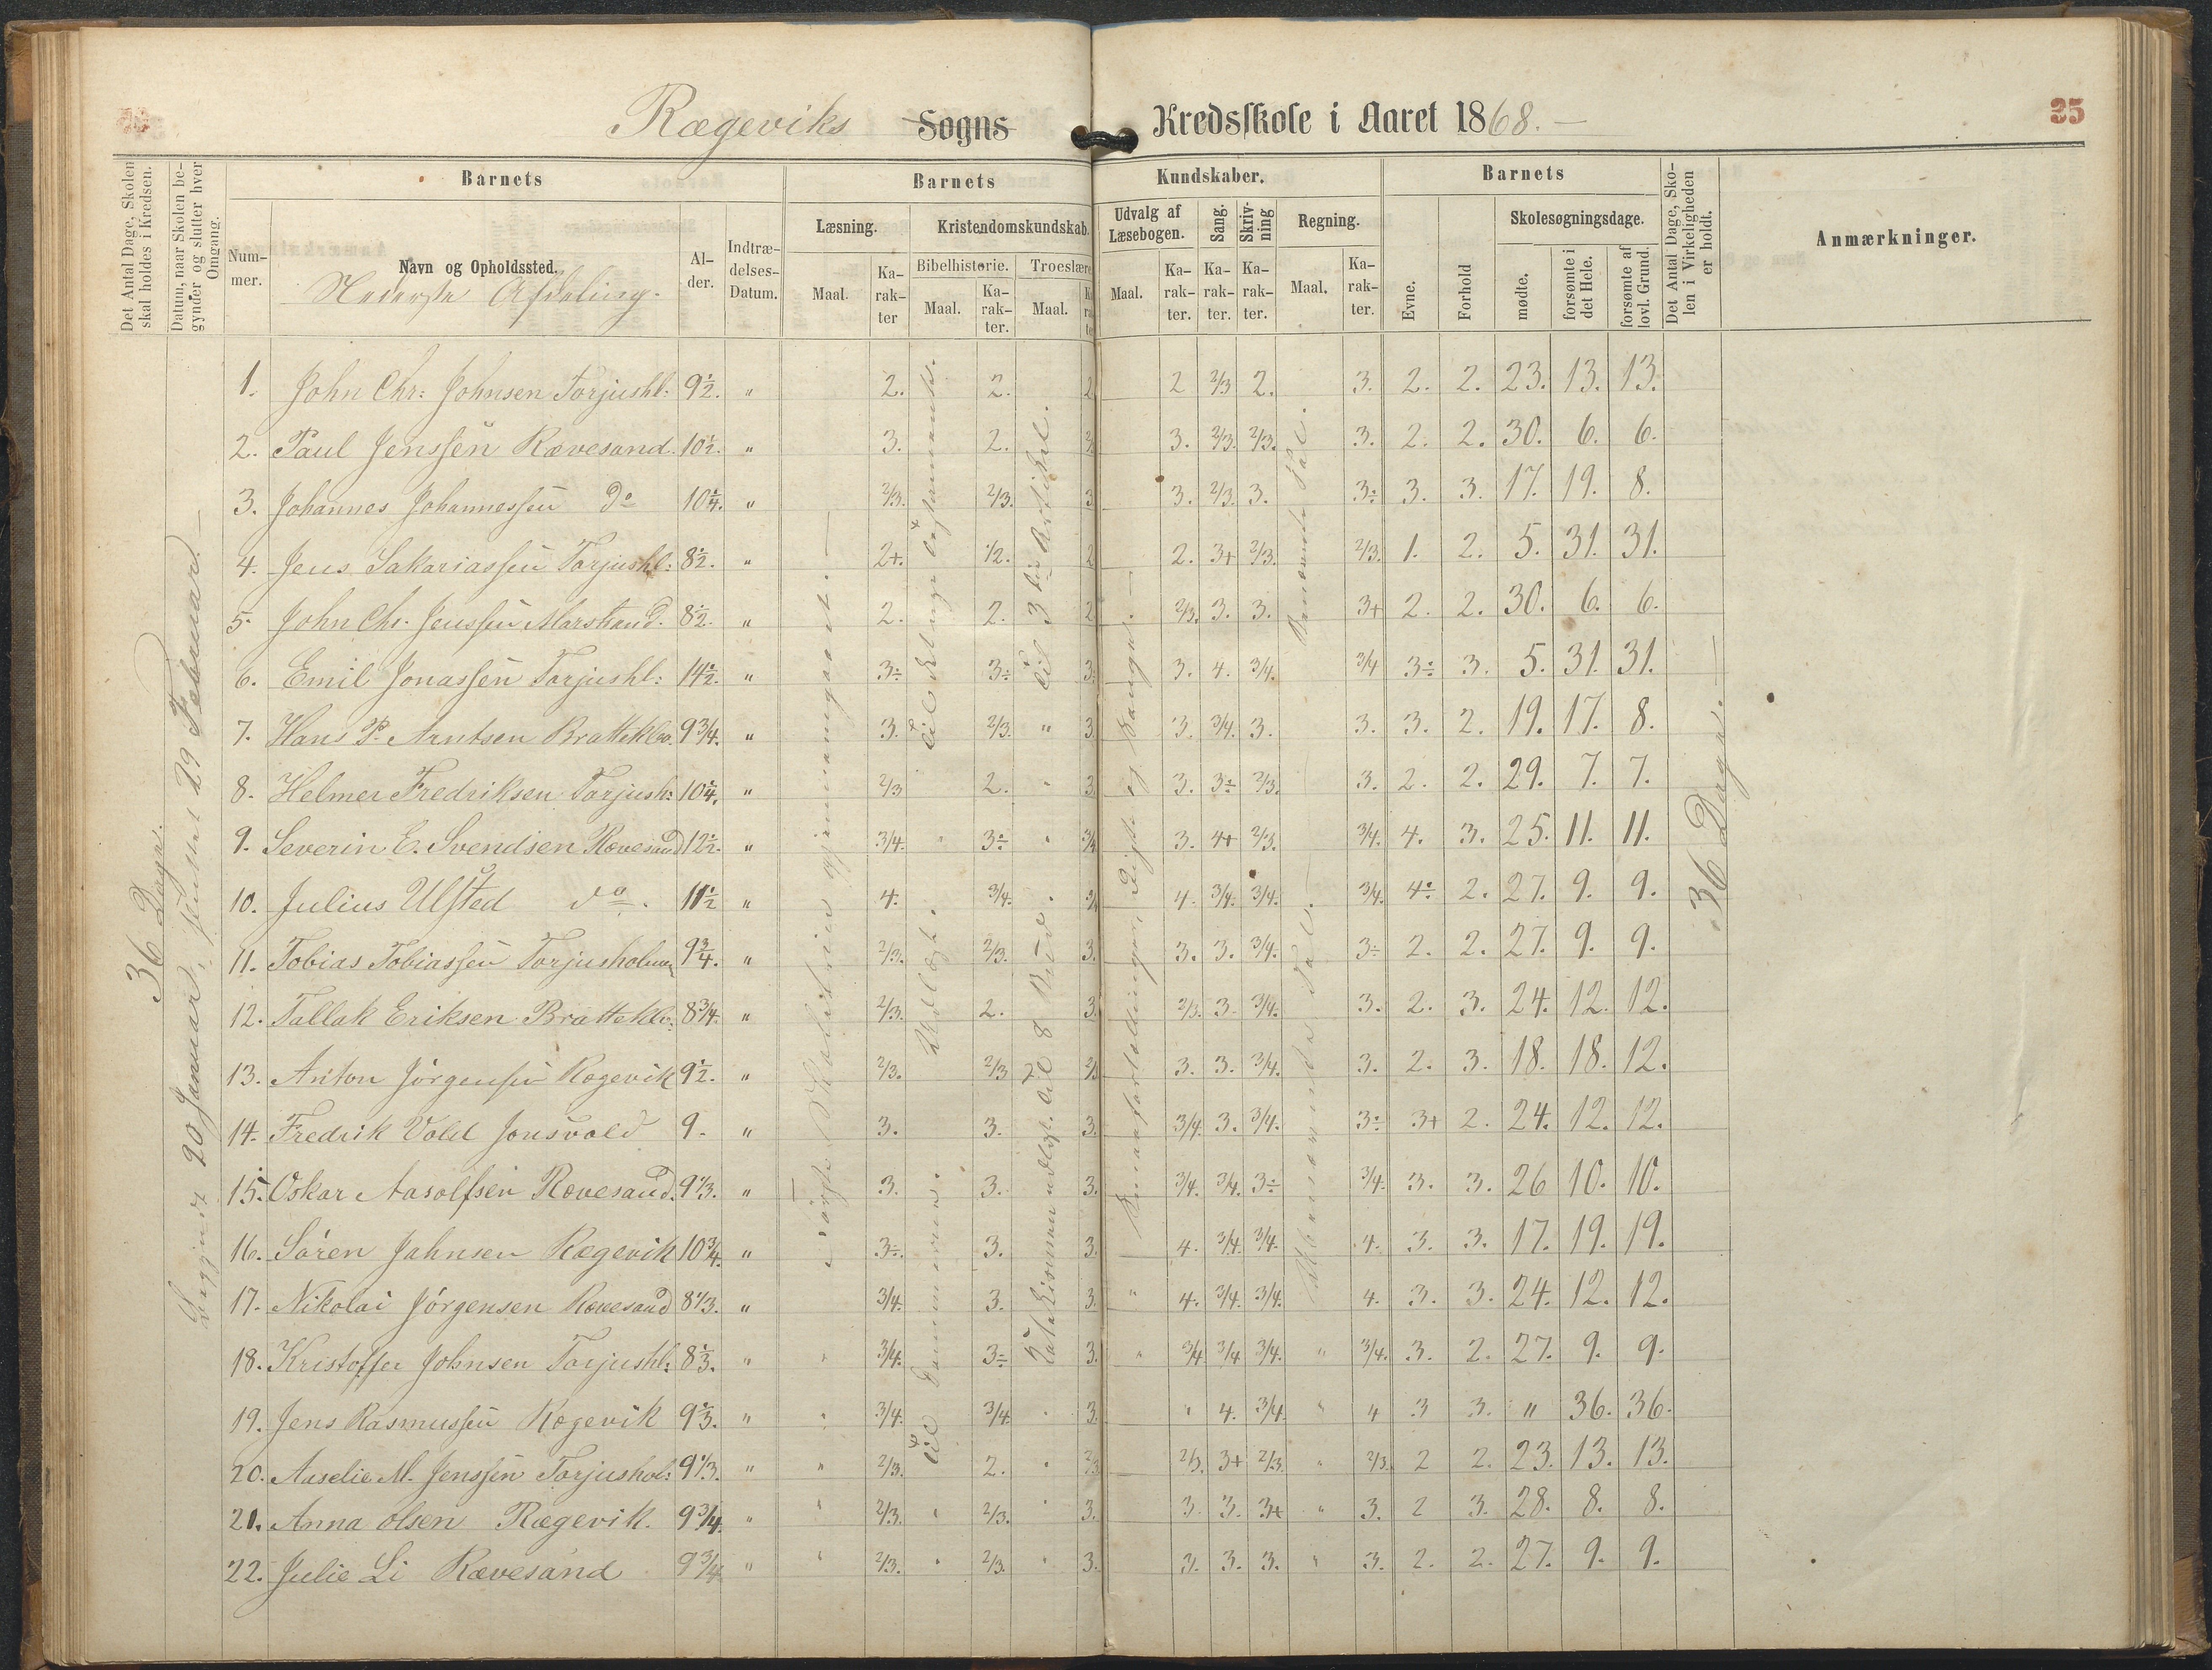 Rægeviks Sogns Kredsskole i Aaret 1868.
35
Det Antal Dage, Skolen skal holdes i Kredsen.
Datum, naar Skolen begynder og slutter hver Omgang.
Barnets
Barnets
Kundskaber.
Barnets
Det Antal Dage, Skolen i Virkeligheden er holdt.
Anmærkninger.
Nummer.
Navn og Opholdssted.
Nederste Afdeling.
Alder.
Indtrædelses-Datum.
Læsning.
Kristendomskundskab.
Udvalg af Læsebogen.
Sang.
Skrivning
Regning.
Evne.
Forhold
Skolesøgningsdage.
Bibelhistorie.
Troeslære
Maal.
Karakter
Maal.
Karakter.
Maal.
Maal.
Karakter.
Karakter.
Karakter.
Maal.
Karakter.
mødte.
forsømte i det Hele.
forsømte af lovl. Grund.
36 Dage.
Begyndt 20 Januar, sluttet 29 Februar.
36 Dage.
1. John Chr: Johnsen Torjushl: 9½. " 2. 2. 2 2 2/3 2. 3. 2. 2. 23. 13. 13.
2. Paul Jenssen Rævesand. 10½. " 3. 2. 3. 2/3. 2/3. 3. 2. 2. 30. 6. 6.
3. Johannes Johannessen do 10¼. " 2/3. 2/3. 3 3. 2/3. 3. 3÷ 3. 3. 17. 19. 8.
4. Jens Sakariassen Torjushl: 8½. " 2+. 1/2. 2 2. 3+ 2/3. 2/3. 1. 2. 5. 31. 31.
5. John Chr. Jenssen Marstrand. 8½. " 2. 2. 2 2/3. 3. 3. 3+ 2. 2. 30. 6. 6.
6. Emil Jonassen Torjushl: 14½. " 3÷ 3÷ 3. 3. 4. 3/4. 3/4 3÷ 3. 5. 31. 31.
7. Hans P. Arntsen Bratteklev. 9¾. " 3. 2/3. " 3. 3. 3/4. 3. 3. 3. 2. 19. 17. 8.
8. Helmer Fredriksen Torjush: 10¼. " 2/3 2. " 3. 3. 3÷ 2/3. 3. 2. 2. 29. 7. 7.
9. Severin E. Svendsen Rævesand 12½. " 3/4. " 3÷ " 3/4 3. 4+ 2/3. 3/4. 4. 3. 25. 11. 11.
10. Julius Ulsted do. 11½ " 4. 3/4. 3/4 4. 3/4. 3/4. 3/4. 4÷ 2. 27. 9. 9.
11. Tobias Tobiassen Torjusholmen 9¾. " 2/3. 2/3. 3. 3. 3. 3/4. 3÷ 2. 2. 27. 9. 9.
12. Tallak Eriksen Bratteklev. 8¾. " 2/3. 2. 3. 2/3. 3. 3/4. 3. 2. 3. 24. 12. 12.
13. Anton Jörgensen Rægevik 9½. " 2/3. 2/3 3. 3. 3/4. 3. 2. 3. 18. 18. 12.
14. Fredrik Vold Jonsvold 9. " 3. 3. 3. 3/4. 3. 3/4. 3÷ 3+ 2. 24. 12. 12.
15. Oskar Aasolfsen Rævesand. 9⅓. " 3. 3. 3. 3/4. 3/4. 3÷ 3/4. 3. 3. 26 10. 10.
16. Sören Jahnsen Rægevik 10¾. " 3÷. 3. 3. 4. 3/4. 3/4. 4. 3. 3. 17. 19. 19.
17. Nikolai Jörgensen Rævesand 8⅓. " 3/4. 3. 3. " 4. 3/4. 3/4. 4. 3. 3. 24. 12. 12.
18. Kristoffer Johnsen Torjushl: 8⅓. " " 3/4. 3÷ 3. " 3/4 3/4 3/4. " 3/4. 3. 2. 27. 9. 9.
19. Jens Rasmussen Rægevik 9⅓. " " 3/4. 3/4. " 3. " 4. 3/4. " 4 3 3. " 36. 36.
20. Aaselie M. Jenssen Torjushol: 9⅓. " " 2/3. 2. " 2/3 2/3. 3+ 2/3. " 2/3. 2 2. 23. 13. 13.
21. Anna Olsen Rægevik. 9¾. " " 2/3. " 2/3. " 3. 3. 3. 3+ " 3. 2 3. 28. 8. 8.
22. Julie Li Rævesand 9¾ " " 2/3. " 2/3. " 3. 3. 3. 3. " 3. 2. 2. 27. 9. 9.